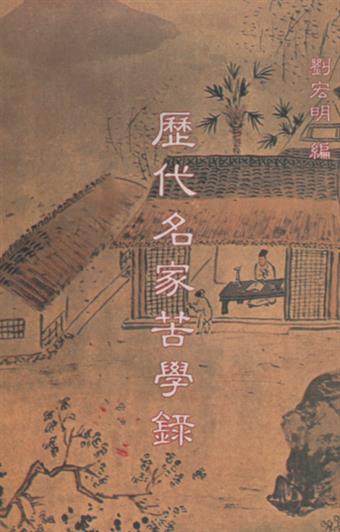 劉宏明編
歷代名家苦學錄